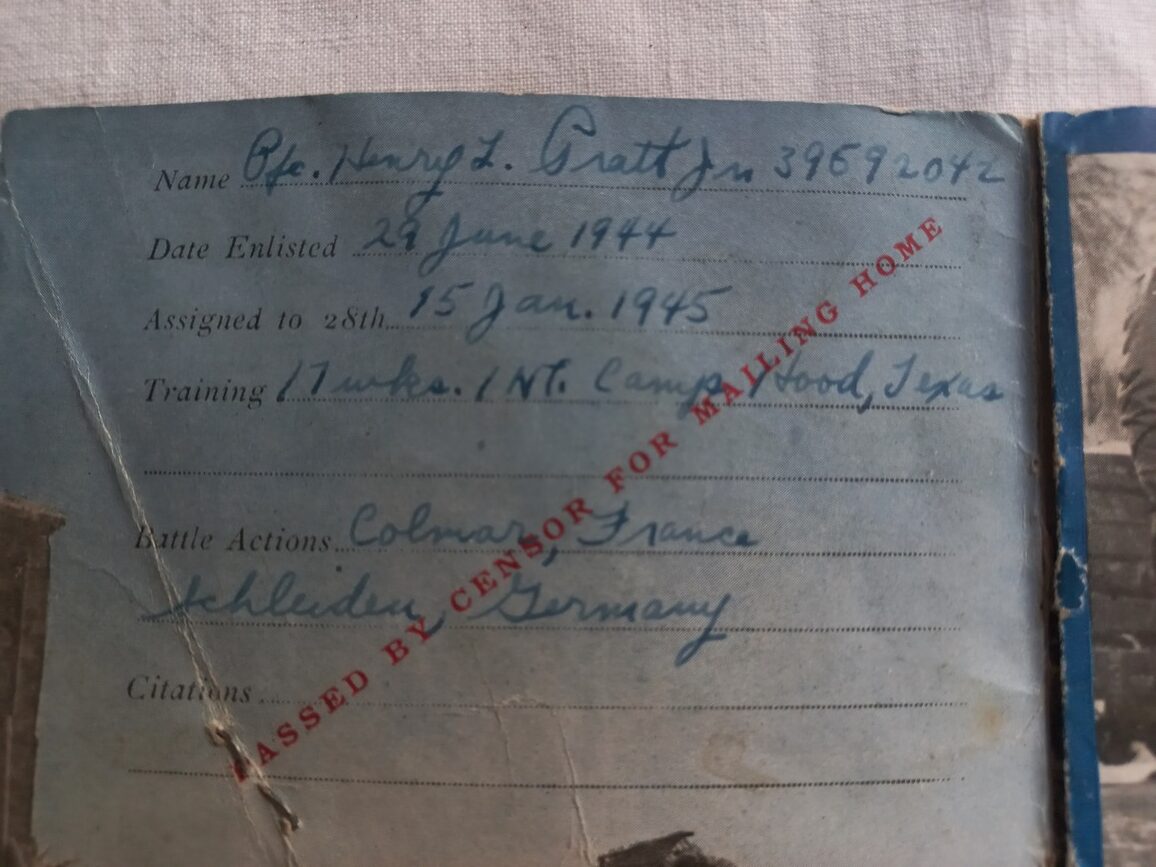 Name Pfc. Henry L. Pratt Jr. 39692042
Date Enlisted 29 June 1944
Assigned to 28th 15 Jan. 1945
Training 17 wks. INT. Camp Hood, Texas
Battle Actions Colmar, France
Schleiden, Germany
Citations
PASSED BY CENSOR FOR MAILING HOME